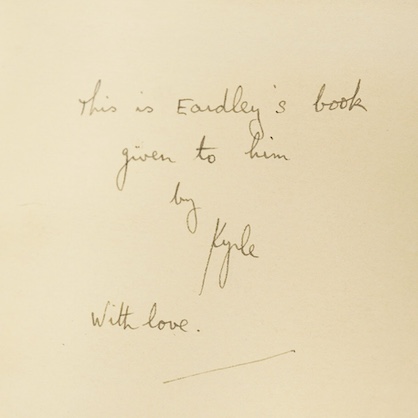 This is Eardley's book
given to him
by
Kyrle
With love.